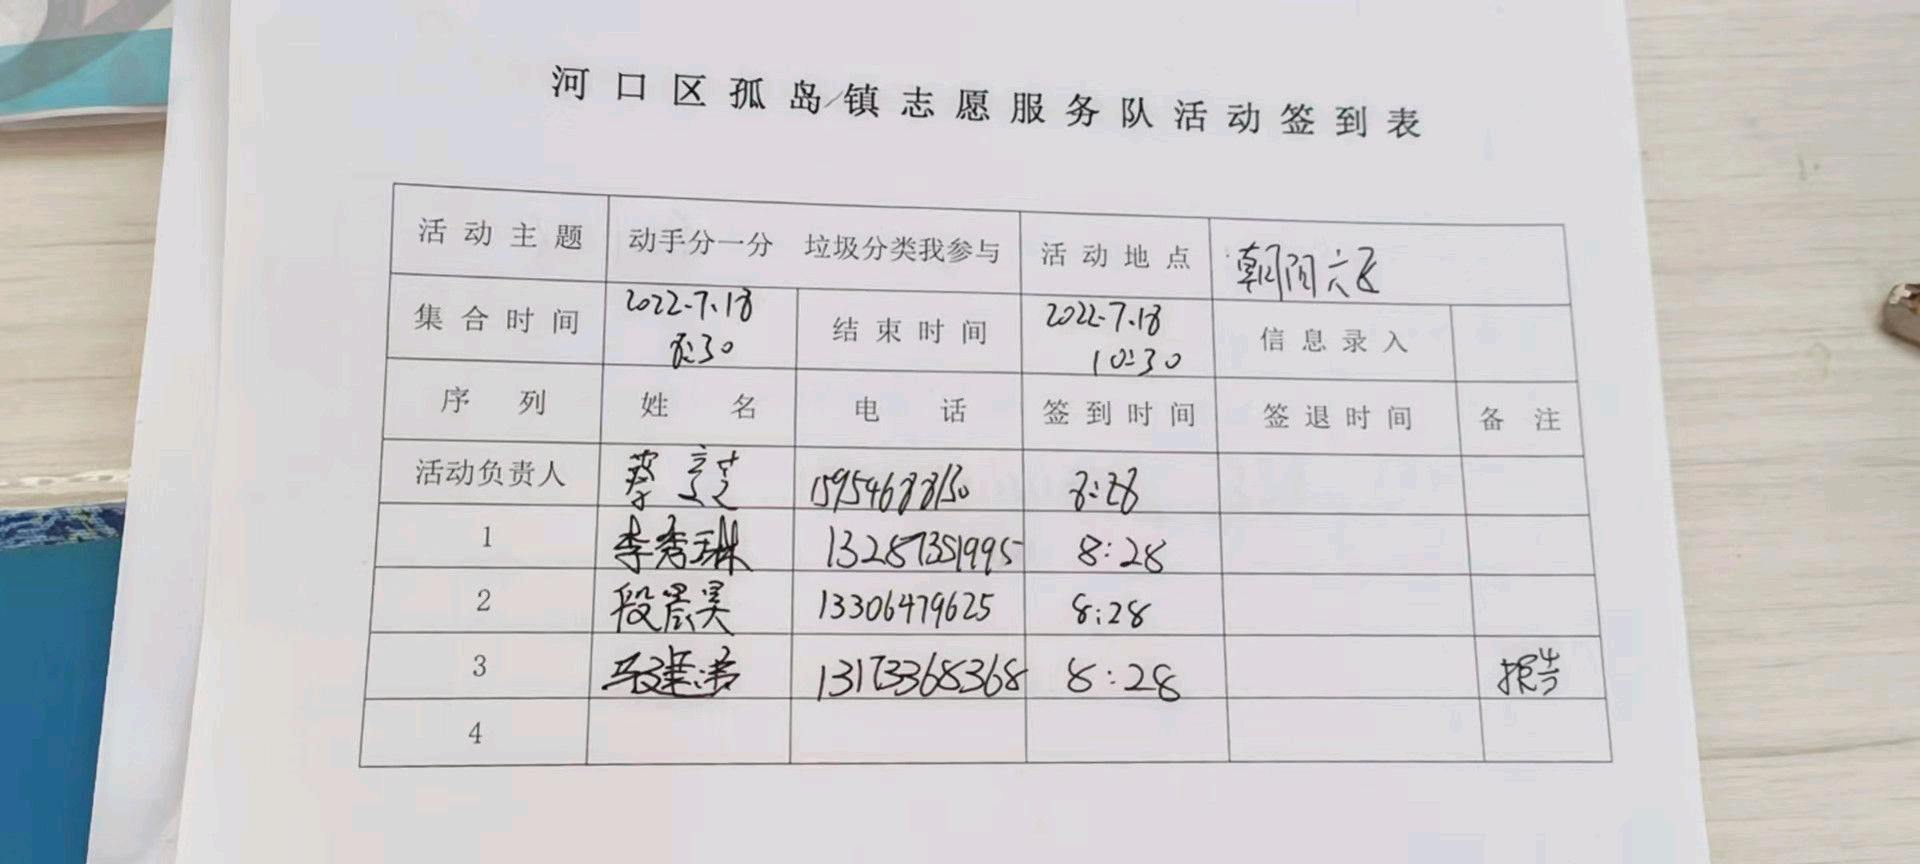 河口区孤岛镇志愿服务队活动签到表
活动主题 动手分一分 垃圾分类我参与 活动地点 朝阳六区
集合时间 2022.7.18 8:30 结束时间 2022.7.18 10:30 信息录入
序列 姓名 电话 签到时间 签退时间 备注
活动负责人 蔡 15954688130 8:28
1 李秀琳 13287351995 8:28
2 段景昊 13306479625 8:28
3 13173368368 8:28
4